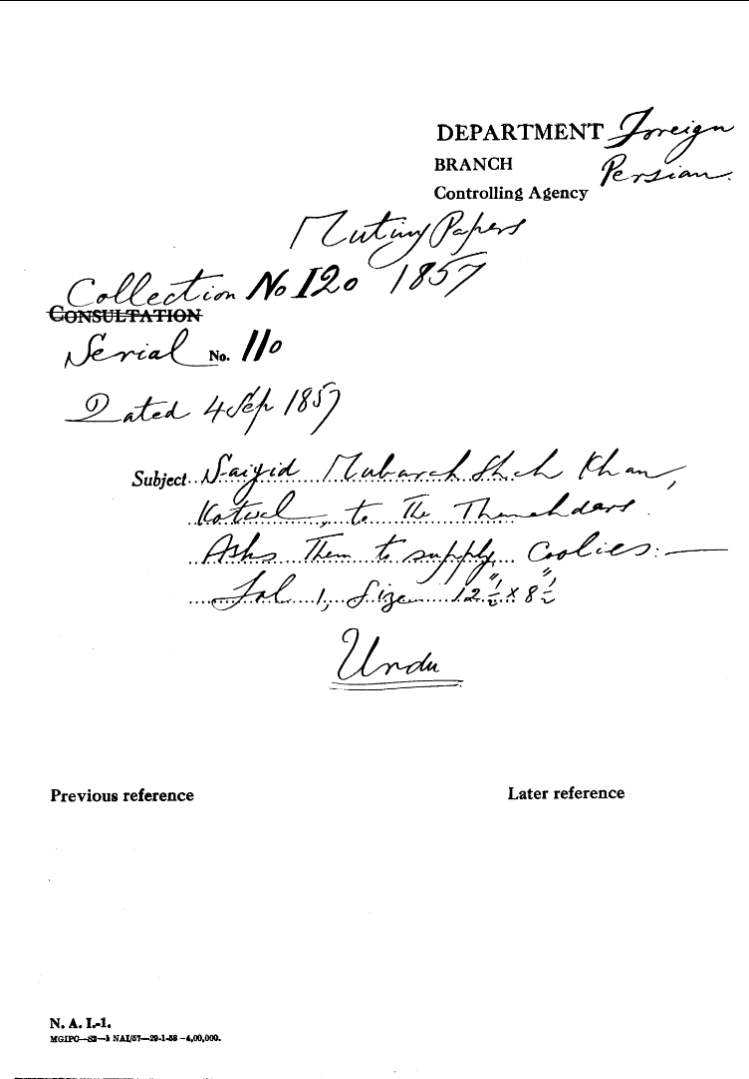 DEPARTMENT Foreign
BRANCH Persian.
Controlling Agency
Mutiny Papers
Collection No 120 1857
CONSULTATION
Serial No. 110
Dated 4 Sep 1857
Subject Saiyid Mubarak Shah Khan,
Kotwal, to the Thanehdars.
Asks them to supply Coolies:—
Fol. 1, Size 12 ½" × 8 ½"
Urdu
Previous reference
Later reference
N. A. I.-1.
MGIPC—S2—3 NAI/57—29-1-58—4,00,000.